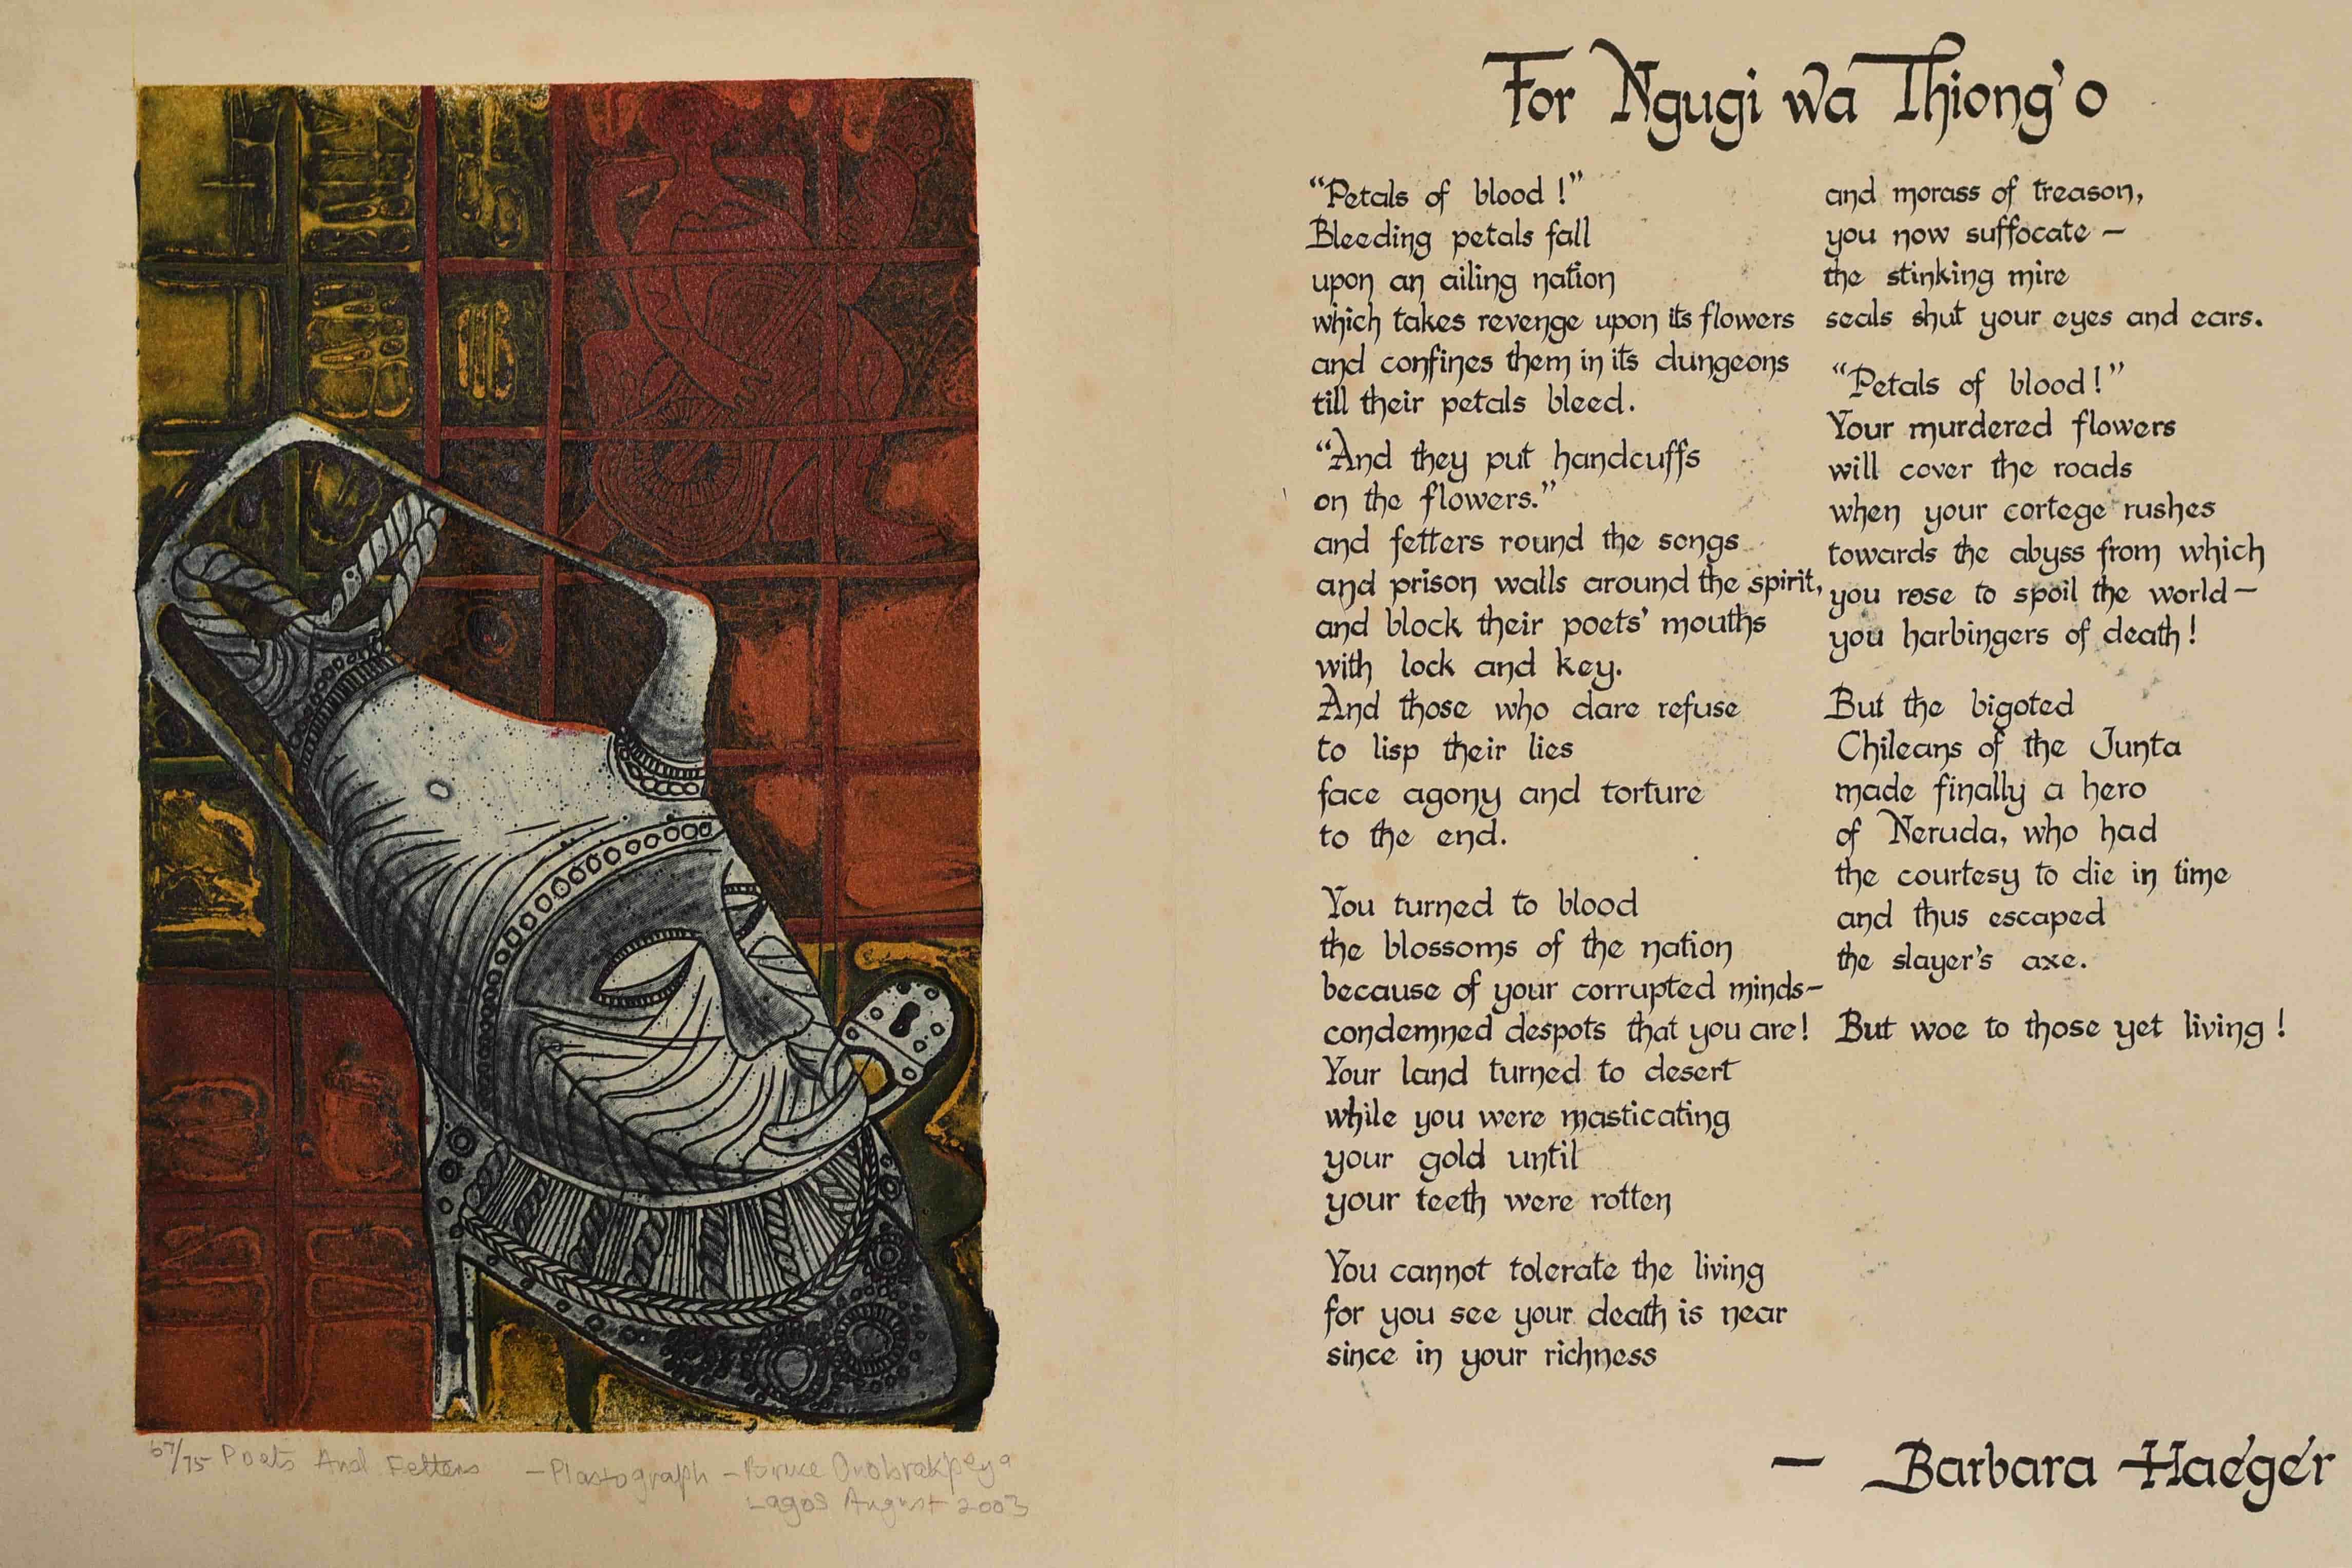 For Ngugi wa Thiong'o
"Petals of blood!"
Bleeding petals fall
upon an ailing nation
which takes revenge upon its flowers
and confines them in its dungeons
till their petals bleed.
"And they put handcuffs
on the flowers."
and fetters round the songs
and prison walls around the spirit,
and block their poets' mouths
with lock and key.
And those who dare refuse
to lisp their lies
face agony and torture
to the end.
You turned to blood
the blossoms of the nation
because of your corrupted minds—
condemned despots that you are!
Your land turned to desert
while you were masticating
your gold until
your teeth were rotten
You cannot tolerate the living
for you see your death is near
since in your richness
and morass of treason,
you now suffocate —
the stinking mire
seals shut your eyes and ears.
"Petals of blood!"
Your murdered flowers
will cover the roads
when your cortege rushes
towards the abyss from which
you rose to spoil the world—
you harbingers of death!
But the bigoted
Chileans of the Junta
made finally a hero
of Neruda, who had
the courtesy to die in time
and thus escaped
the slayer's axe.
But woe to those yet living!
— Barbara Haéger
67/75 Poets And Fetters — Plastograph — Bruce Onobrakpeya
Lagos August 2003